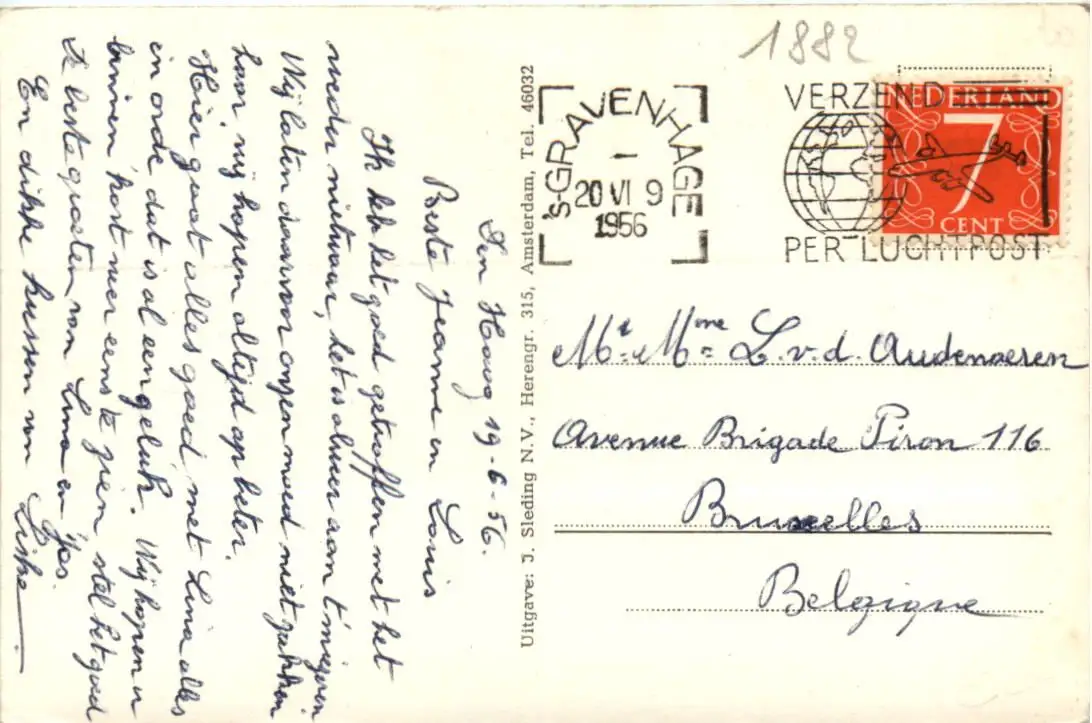 Den Haag 19-6-56.
Beste Jeanne en Louis
Ik heb het goed getroffen met het
weder nietwaar, het is alweer aan 't miezeren
Wij laten daarvoor onzen moed niet zakken
hoor wij hopen altijd op beter.
Hier gaat alles goed met Lina alles
in orde dat is al een geluk. Wij hopen u
binnen kort weer eens te zien, stel het goed
de beste groeten van Lina en Jos.
En dikke kussen van Liske
Uitgave: J. Sleding N.V., Herengr. 315, Amsterdam, Tel. 46032
1882
's-GRAVENHAGE
1
20 VI 9
1956
VERZEND
PER LUCHTPOST
NEDERLAND
7
CENT
Mr. Mme L.v.d. Audenaeren
Avenue Brigade Piron 116
Bruxelles
Belgique